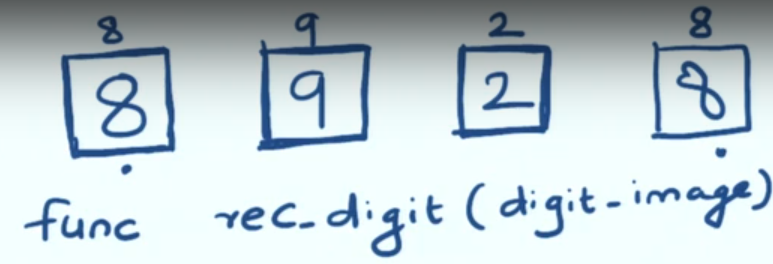 8 9 2 8
8 9 2 8
func rec_digit (digit-image)